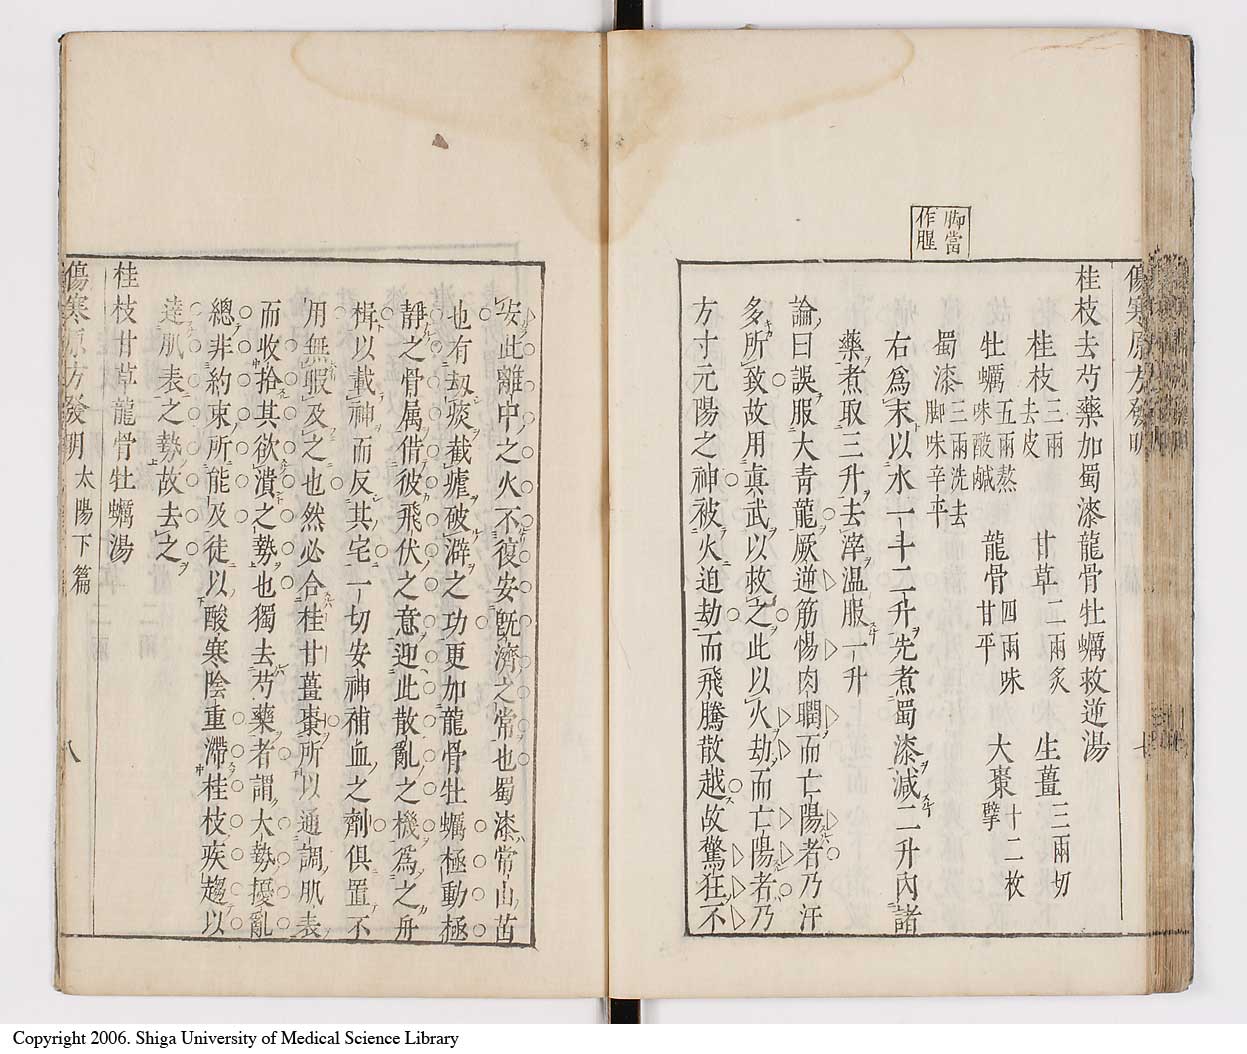 脚當
作腥
傷寒原方發明
桂枝去芍藥加蜀漆龍骨牡蠣救逆湯
桂枝三兩去皮 甘草二兩炙 生薑三兩切
牡蠣五兩熬味酸鹹 龍骨四兩味甘平 大棗十二枚擘
蜀漆三兩洗去脚味辛平
右爲末以水一十二升先煮蜀漆減二升內諸
藥煮取三升去滓温服一升
論曰誤服大青龍厥逆筋惕肉瞤而亡陽者乃汗
多所致故用真武以救之此以火劫而亡陽者乃
方寸元陽之神被火迫劫而飛騰散越故驚狂不
安此離中之火不復安旣濟之常也蜀漆常山苗
也有劫痰截瘧破澼之功更加龍骨牡蠣極動極
靜之骨属借彼飛伏之意迎此散亂之機爲之舟
楫以載神而反其宅一切安神補血之劑俱置不
用無暇及之也然必合桂甘薑棗所以通調肌表
而收拾其欲潰之勢也獨去芍藥者謂大勢擾亂
總非約束所能及徒以酸寒陰重滯桂枝疾趨以
達肌表之勢故去之
桂枝甘草龍骨牡蠣湯
傷寒原方發明 太陽下篇 八
Copyright 2006. Shiga University of Medical Science Library